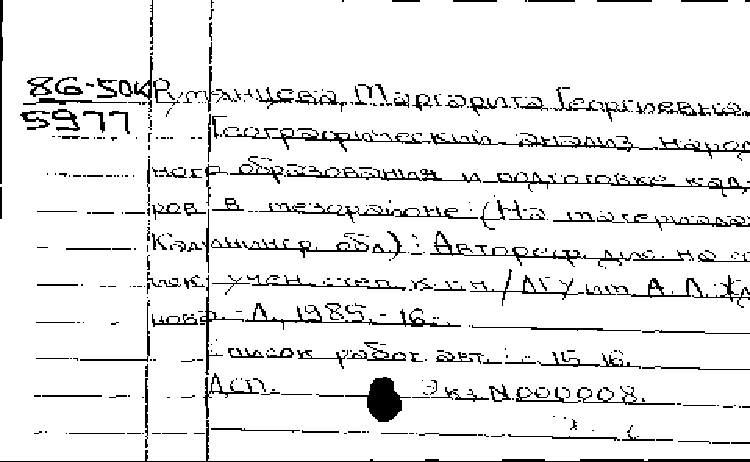 86-50к Румянцева, Маргарита Георгиевна.
5977
Географический анализ народ
ного образования и подготовке кад-
ров в мезорайоне: (На материалах
Калининср. обл) : Автореф. дис. на с
иск. учен. степ. к.г.н. / ЛГУ им А. А. Жда
нова. - Л., 1985. - 16.
Список работ авт. : - 15-16.
ДСП. Экз N000008.